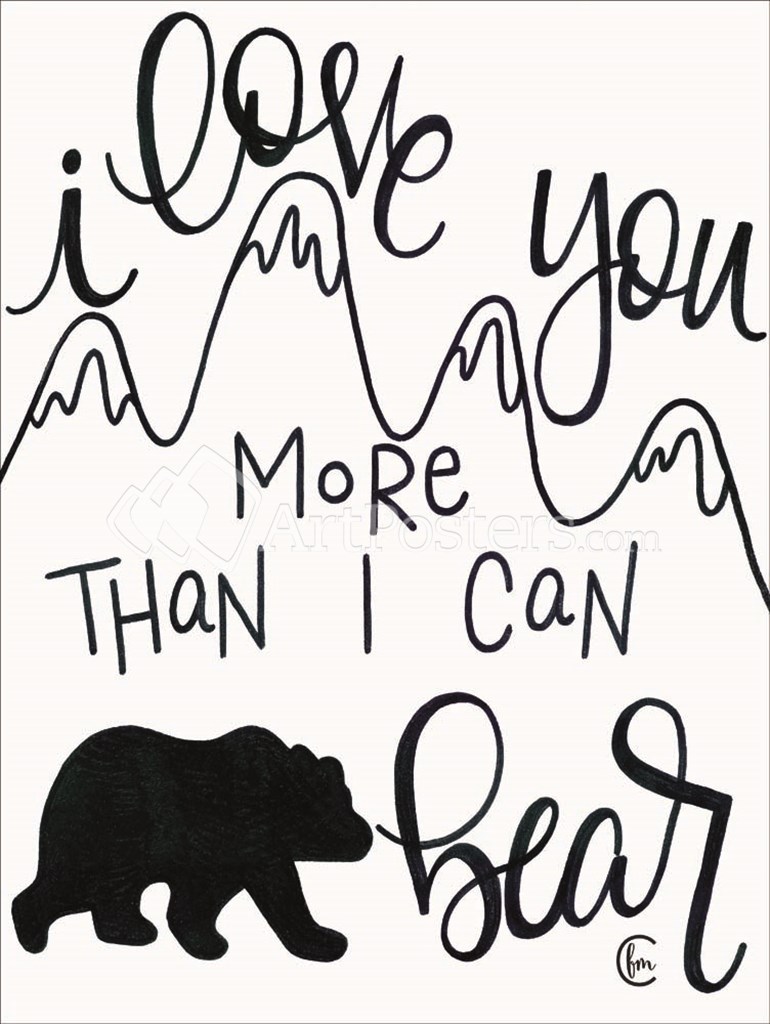 i love you
MoRe
THaN I CaN
bear
ArtPosters.com
fm